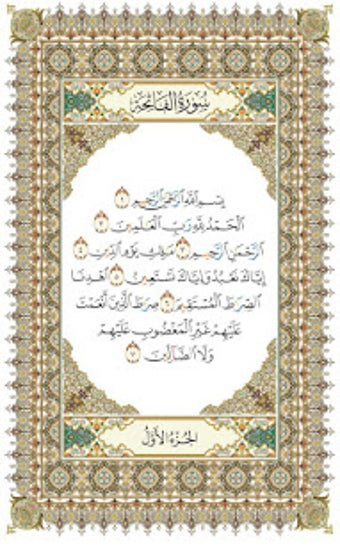 سُورَةُ الْفَاتِحَةِ
بِسْمِ اللَّهِ الرَّحْمَٰنِ الرَّحِيمِ ١
الْحَمْدُ لِلَّهِ رَبِّ الْعَالَمِينَ ٢
الرَّحْمَٰنِ الرَّحِيمِ ٣ مَالِكِ يَوْمِ الدِّينِ ٤
إِيَّاكَ نَعْبُدُ وَإِيَّاكَ نَسْتَعِينُ ٥ اهْدِنَا
الصِّرَاطَ الْمُسْتَقِيمَ ٦ صِرَاطَ الَّذِينَ أَنْعَمْتَ
عَلَيْهِمْ غَيْرِ الْمَغْضُوبِ عَلَيْهِمْ
وَلَا الضَّالِّينَ ٧
الجُزْءُ الأَوَّلُ